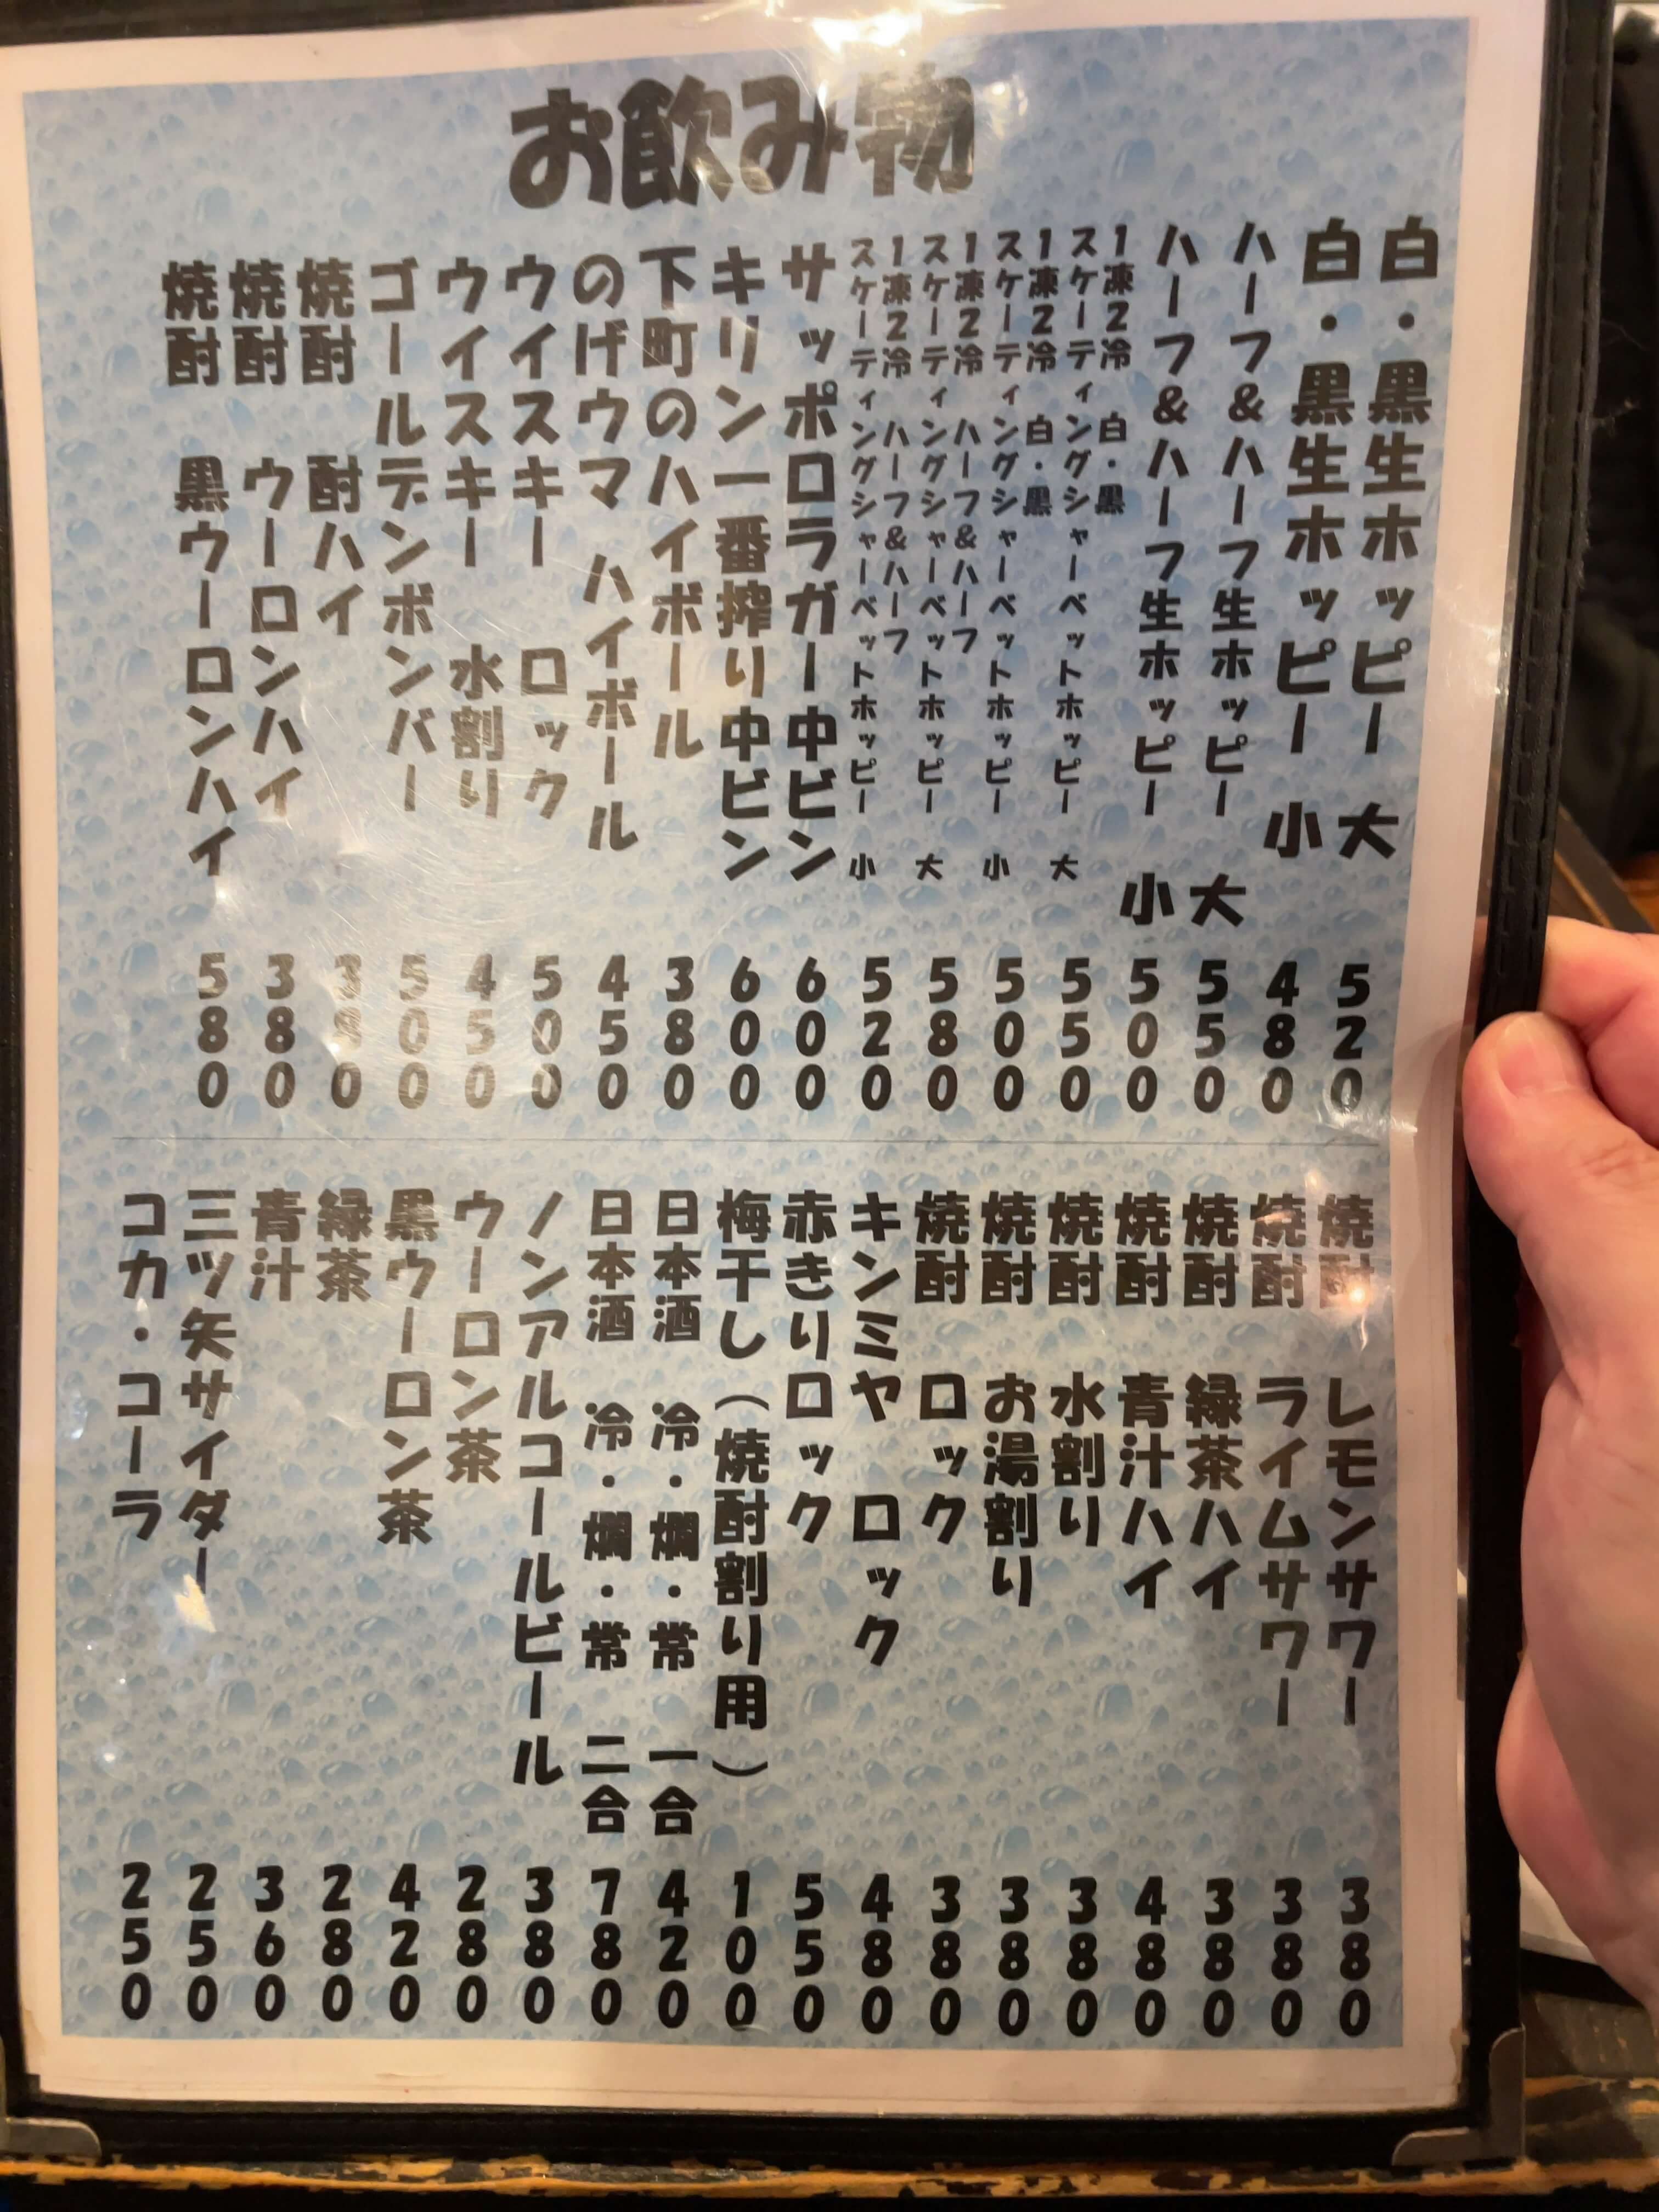 お飲み物
白・黒生ホッピー 大 520
白・黒生ホッピー 小 480
ハーフ&ハーフ生ホッピー 大 550
ハーフ&ハーフ生ホッピー 小 500
1凍2冷 白・黒
スケーティングシャーベットホッピー 大 550
1凍2冷 白・黒
スケーティングシャーベットホッピー 小 500
1凍2冷 ハーフ&ハーフ
スケーティングシャーベットホッピー 大 580
1凍2冷 ハーフ&ハーフ
スケーティングシャーベットホッピー 小 520
サッポロラガー中ビン 600
キリン一番搾り中ビン 600
下町のハイボール 380
のげウマ ハイボール 450
ウイスキー ロック 500
ウイスキー 水割り 450
ゴールデンボンバー 500
焼酎 酎ハイ 380
焼酎 ウーロンハイ 380
焼酎 黒ウーロンハイ 580
焼酎 レモンサワー 380
焼酎 ライムサワー 380
焼酎 緑茶ハイ 380
焼酎 青汁ハイ 480
焼酎 水割り 380
焼酎 お湯割り 380
焼酎 ロック 380
キンミヤ ロック 480
赤きりロック 550
梅干し(焼酎割り用) 100
日本酒 冷・燗・常 一合 420
日本酒 冷・燗・常 二合 780
ノンアルコールビール 380
ウーロン茶 280
黒ウーロン茶 420
緑茶 280
青汁 360
三ツ矢サイダー 250
コカ・コーラ 250